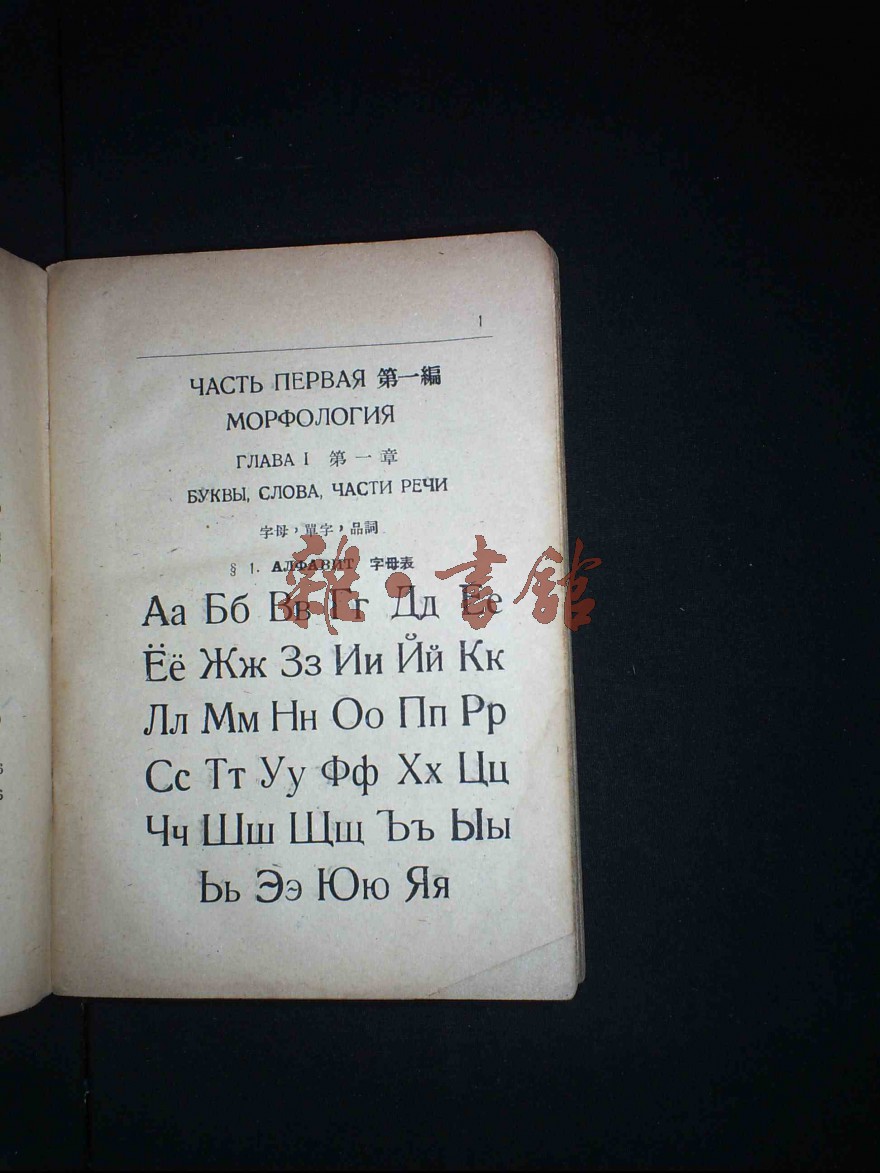 1
ЧАСТЬ ПЕРВАЯ 第一編
МОРФОЛОГИЯ
ГЛАВА I 第一章
БУКВЫ, СЛОВА, ЧАСТИ РЕЧИ
字母，單字，品詞
§ 1. АЛФАВИТ 字母表
雜·書館
Аа Бб Вв Гг Дд Ее
Ёё Жж Зз Ии Йй Кк
Лл Мм Нн Оо Пп Рр
Сс Тт Уу Фф Хх Цц
Чч Шш Щщ Ъъ Ыы
Ьь Ээ Юю Яя